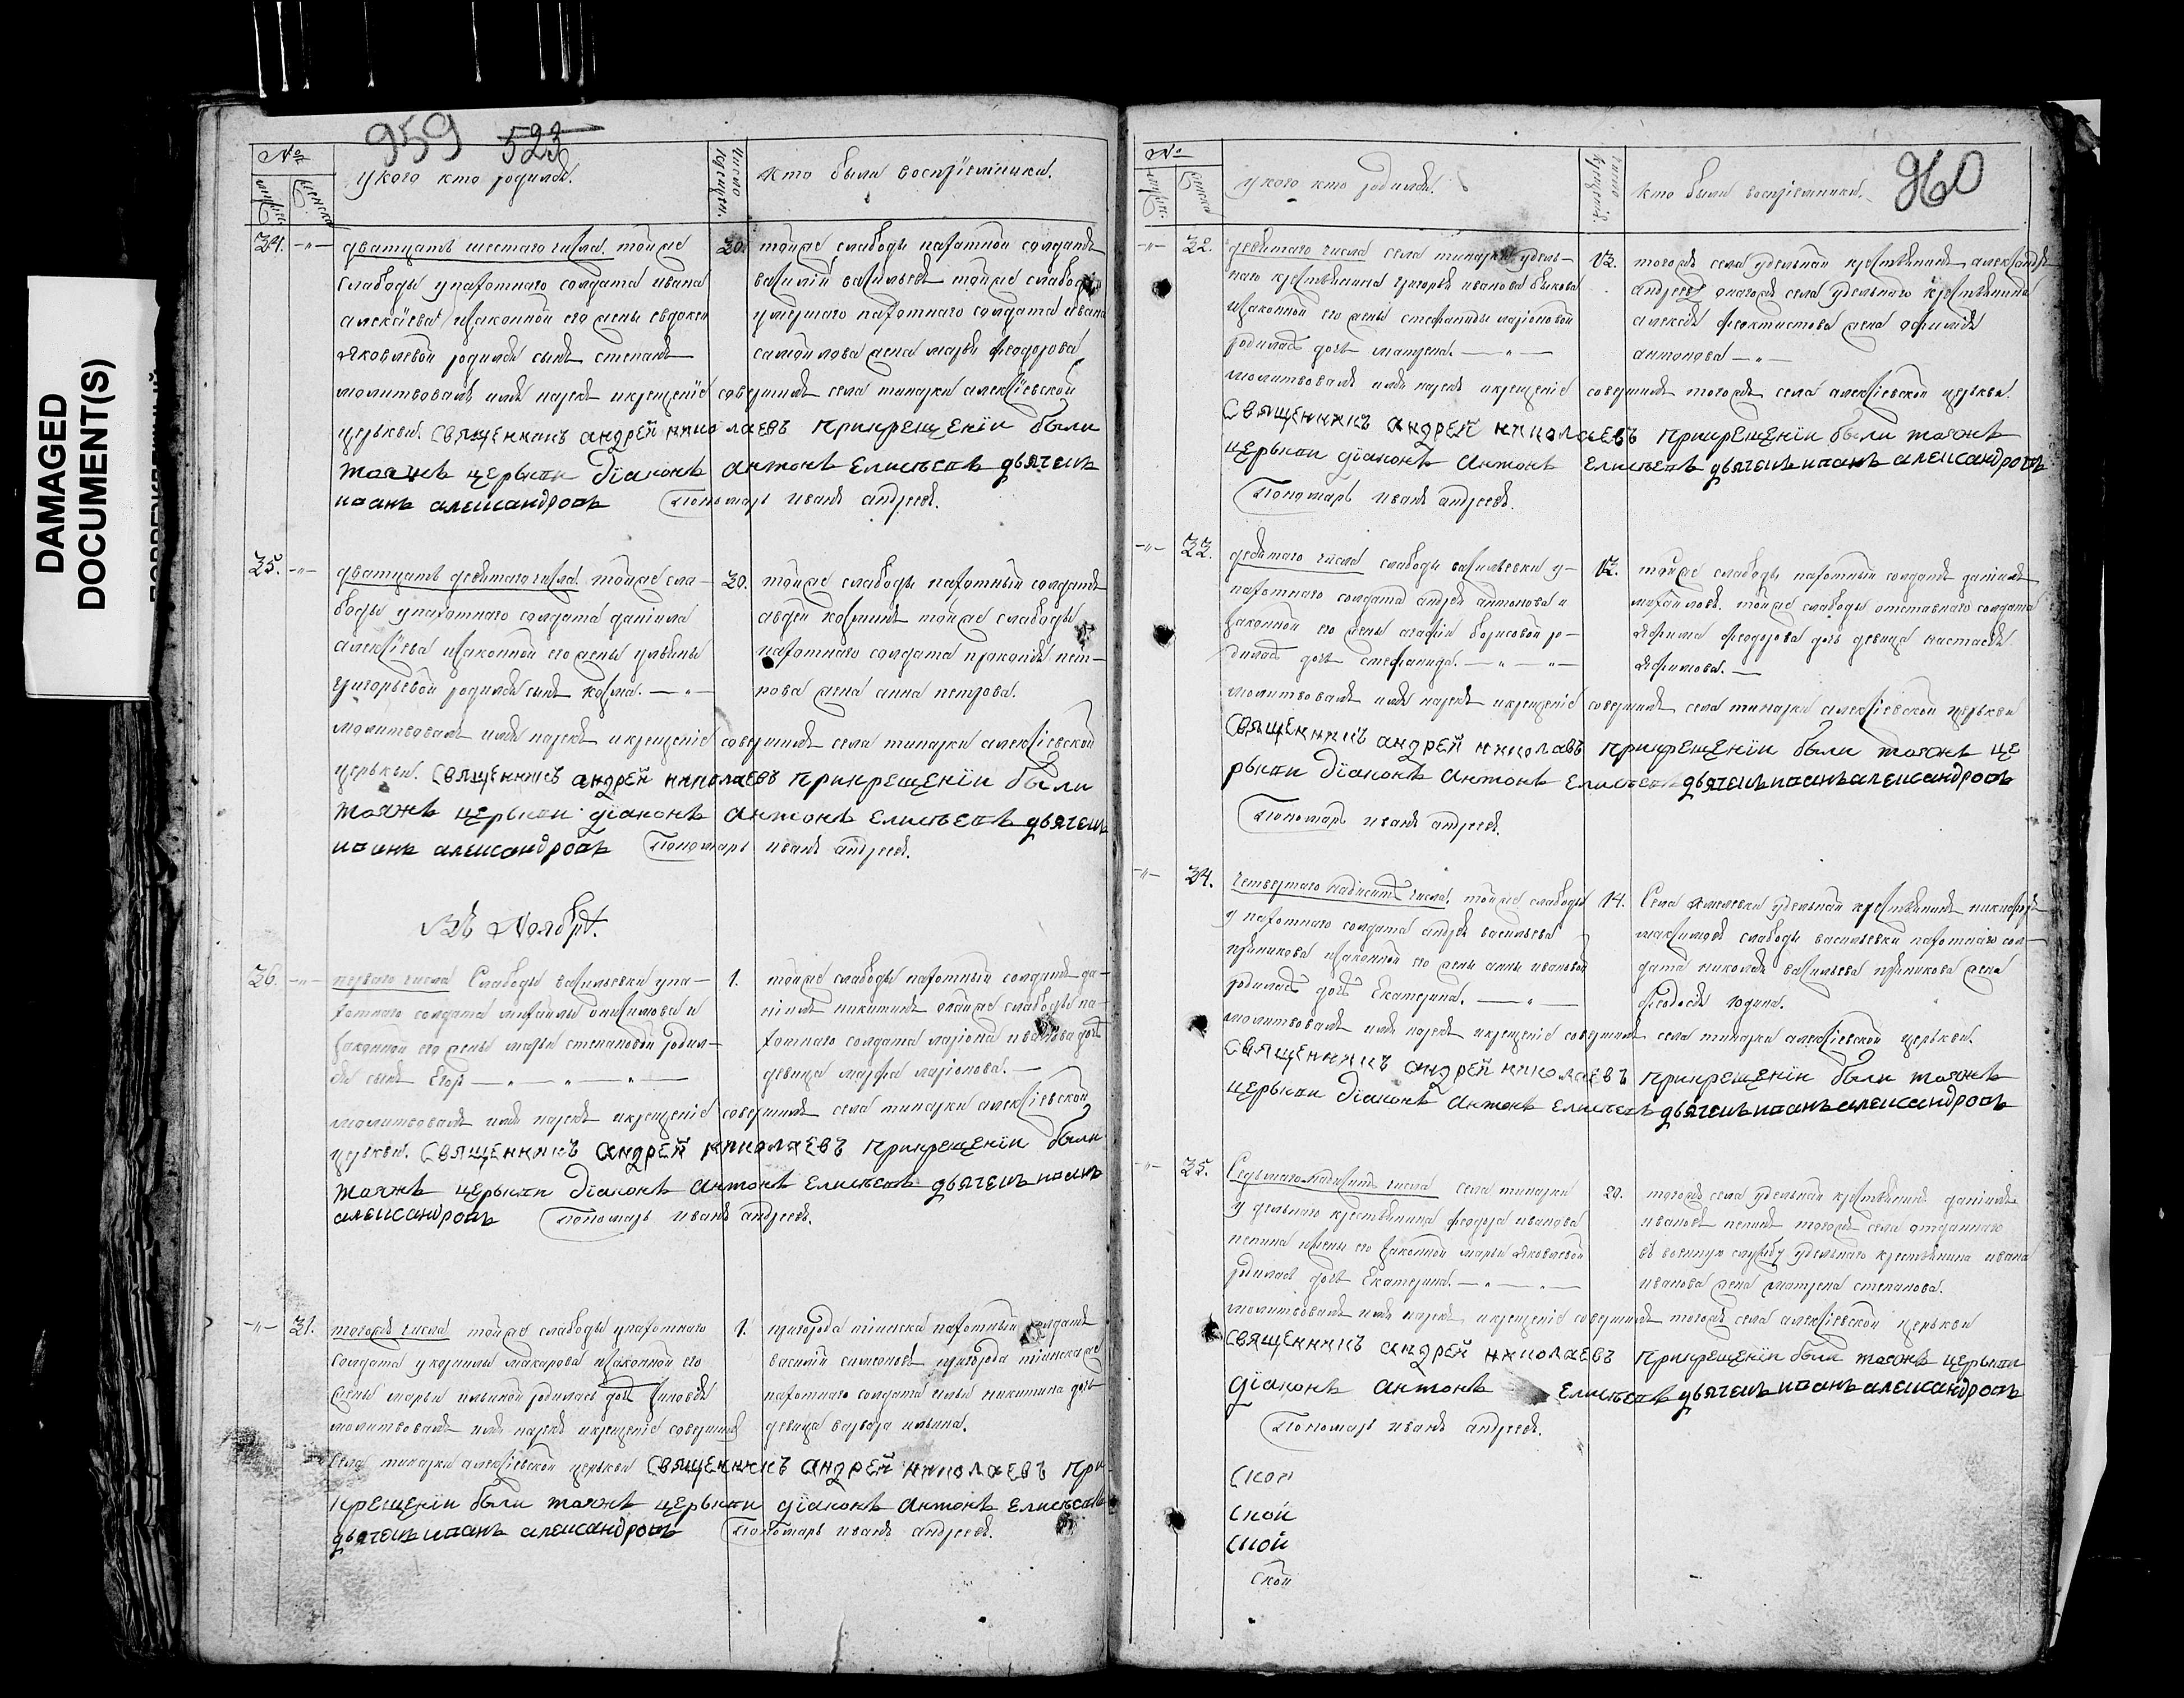 DAMAGED
DOCUMENT(S)
959 523
№
у кого кто родился.
число крещен.
кто были воспріемники.
34. -"- дватцать шестаго числа. тойже
слабоды упахотнаго солдата ивана
алексіева изаконной его жены евдокеи
яковлевой родился сынъ степанъ
30. тойже слабоды пахотной солдатъ
василій васильевъ тойже слабоды
умершаго пахотнаго солдата ивана
самойлова жена марья феодорова
молитвовалъ имя нарекъ икрещеніе совершилъ села тинарки алексіевской
церькви. Священникъ андрей николаевъ прикрещеніи были
тояжъ церькви діаконъ антонъ елисеевъ дьячекъ
иванъ александровъ Пономарь иванъ андреевъ.
35. -"- дватцать девятаго числа. тойже сла-
боды упахотнаго солдата даніила
алексіева изаконной его жены ульяны
григорьевой родился сынъ козма. -"-
30. тойже слабоды пахотный солдатъ
авдей козминъ тойже слабоды
пахотнаго солдата прокопія пет-
рова жена анна петрова.
молитвовалъ имя нарекъ икрещеніе совершилъ села тинарки алексіевской
церькви. Священникъ андрей николаевъ прикрещеніи были
тояжъ церькви діаконъ антонъ елисеевъ дьячекъ
иванъ александровъ Пономарь иванъ андреевъ.
Въ Ноябрѣ.
36. -"- перваго числа Слабоды васильевки упа-
хотнаго солдата михайлы анисимова и
законной его жены марьи степановой родил-
ся сынъ Егоръ -"-"-"-
1. тойже слабоды пахотный солдатъ да-
ніилъ никитинъ тойже слабоды па-
хотнаго солдата ларіона иванова дочь
девица марфа ларіонова.
молитвовалъ имя нарекъ икрещеніе совершилъ села тинарки алексіевской
церькви. Священникъ андрей николаевъ прикрещеніи были
тояжъ церькви діаконъ антонъ елисеевъ дьячекъ иванъ
александровъ Пономарь иванъ андреевъ.
-"- 31. тогожъ числа тойже слабоды упахотнаго
солдата укорнилы макарова изаконной его
жены марьи ильиной родилась дочь
1. пригорода тіинска пахотный солдатъ
василій симоновъ пригорода тіинскаже
пахотнаго солдата ильи никитина дочь
девица варвара ильина.
молитвовалъ имя нарекъ икрещеніе совершилъ
села тинарки алексіевской церькви Священникъ андрей николаевъ при
крещеніи были тояжъ церькви діаконъ антонъ елисеевъ
дьячекъ иванъ александровъ Пономарь иванъ андреевъ.
960
№
у кого кто родился.
число крещенія.
кто были воспріемники.
-"- 32. девятаго числа села тинарки удель-
наго крестьянина григорья иванова быкова
изаконной его жены стефаниды ларіоновой
родилась дочь матрена. -"-
13. тогожъ села удельный крестьянинъ александръ
андреевъ тогожъ села удельнаго крестьянина
алексея феоктистова жена
антонова -"-
молитвовалъ имя нарекъ икрещеніе совершилъ тогожъ села алексіевской церькви.
Священникъ андрей николаевъ прикрещеніи были тояжъ
церькви діаконъ антонъ елисеевъ дьячекъ иванъ александровъ
Пономарь иванъ андреевъ.
-"- 33. девятаго числа слабоды васильевки у-
пахотнаго солдата андрея антонова и
законной его жены агафіи борисовой ро-
дилась дочь стефанида. -"-"-
13. тойже слабоды пахотный солдатъ даніилъ
михайловъ. тойже слабоды отставнаго солдата
яфима феодорова дочь девица настасья
яфимова.
молитвовалъ имя нарекъ икрещеніе совершилъ села тинарки алексіевской церькви
Священникъ андрей николаевъ прикрещеніи были тояжъ це
рькви діаконъ антонъ елисеевъ дьячекъ иванъ александровъ
Пономарь иванъ андреевъ.
-"- 34. четвертаго надесять числа. тойже слабоды
у пахотнаго солдата андрея васильева
пряникова изаконной его жены анны ивановой
родилась дочь Екатерина. -"-
14. Села удельный крестьянинъ никифоръ
максимовъ слабоды васильевки пахотнаго сол-
дата николая васильева пряникова жена
феодосья юдина.
молитвовалъ имя нарекъ икрещеніе совершилъ села тинарки алексіевской церькви.
Священникъ андрей николаевъ прикрещеніи были тояжъ
церькви діаконъ антонъ елисеевъ дьячекъ иванъ александровъ
-"- 35. Седьмаго надесять числа села тинарки
у дельнаго крестьянина феодора иванова
пепина ижены его законной марьи яковлевой
родилась дочь Екатерина. -"-"-
20. тогожъ села удельный крестьянинъ даніилъ
ивановъ пепинъ тогожъ села отданнаго
въ военную службу удельнаго крестьянина ивана
иванова жена матрена степанова.
молитвовалъ имя нарекъ икрещеніе совершилъ тогожъ села алексіевской церькви
Священникъ андрей николаевъ прикрещеніи были тояжъ церькви
діаконъ антонъ елисеевъ дьячекъ иванъ александровъ
Пономарь иванъ андреевъ.
Скои
Скои
Скои
Скои